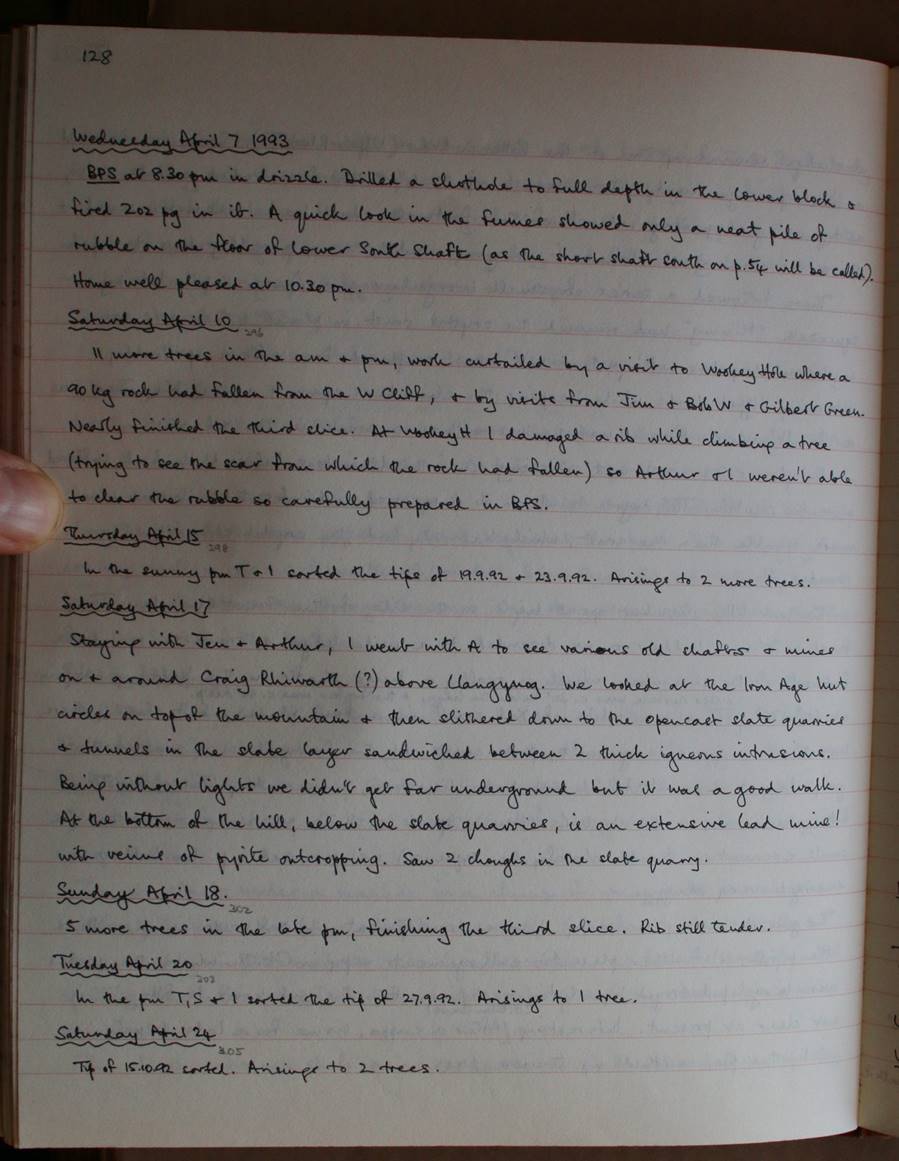 128
Wednesday April 7 1993
BPS at 8.30 pm in drizzle. Drilled a shothole to full depth in the lower block &
fired 2oz pg in it. A quick look in the fumes showed only a neat pile of
rubble on the floor of Lower South Shaft (as the short shaft south on p.54 will be called).
Home well pleased at 10.30 pm.
Saturday April 10
296
11 more trees in the am & pm, work curtailed by a visit to Wookey Hole where a
90 kg rock had fallen from the W Cliff, & by visits from Jim & Bob W & Gilbert Green.
Nearly finished the third slice. At Wookey H I damaged a rib while climbing a tree
(trying to see the scar from which the rock had fallen) so Arthur & I weren't able
to clear the rubble so carefully prepared in BPS.
Thursday April 15
298
In the sunny pm T & I sorted the tips of 19.9.92 & 23.9.92. Arisings to 2 more trees.
Saturday April 17
Staying with Jen & Arthur, I went with A to see various old shafts & mines
on & around Craig Rhiwarth (?) above Llangynog. We looked at the Iron Age hut
circles on top of the mountain & then slithered down to the opencast slate quarries
& tunnels in the slate layer sandwiched between 2 thick igneous intrusions.
Being without lights we didn't get far underground but it was a good walk.
At the bottom of the hill, below the slate quarries, is an extensive lead mine!
with veins of pyrite outcropping. Saw 2 choughs in the slate quarry.
Sunday April 18.
302
5 more trees in the late pm, finishing the third slice. Rib still tender.
Tuesday April 20
303
In the pm T, S & I sorted the tip of 27.9.92. Arisings to 1 tree.
Saturday April 24
305
Tip of 15.10.92 sorted. Arisings to 2 trees.